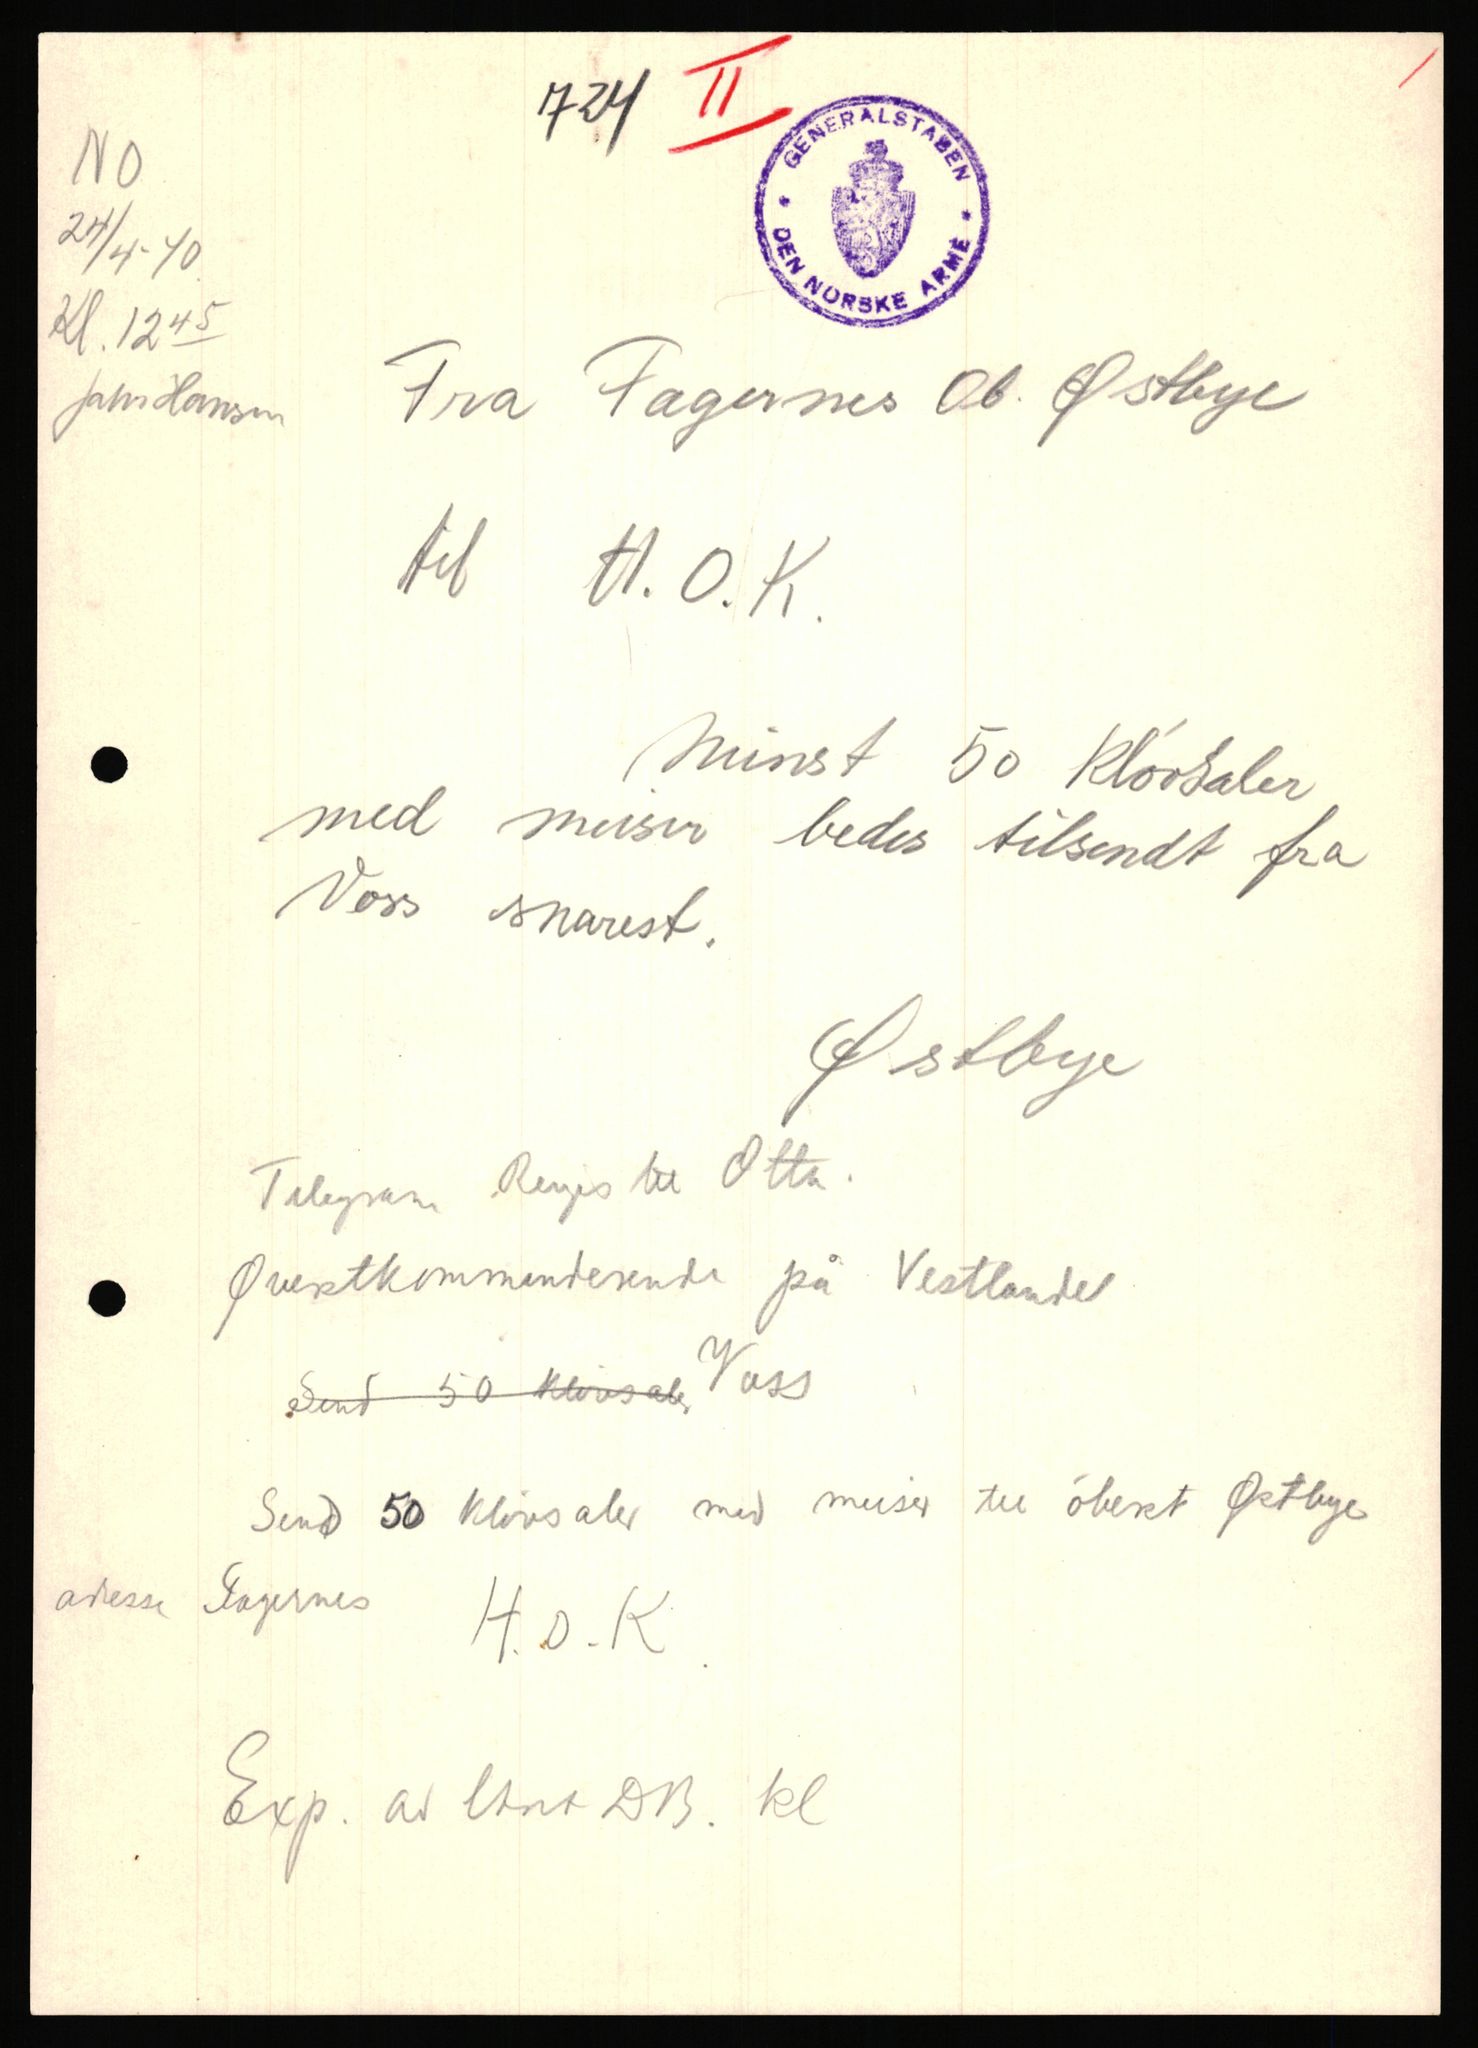 724 II
GENERALSTABEN
DEN NORSKE ARME
NO
24/4-40
Kl. 12 45
Jahr Hansen
Fra Fagernes Ob. Østbye
til H.O.K.
Minst 50 kløvsaler
med meiser bedes tilsendt fra
Voss snarest.
Østbye
Telegram Ringes til Otta.
Øverstkommanderende på Vestlandet
Send 50 kløvsaler Voss
Send 50 kløvsaler med meiser til óberst Østbye
adresse Fagernes
H.O.K.
Exp. av DB. kl